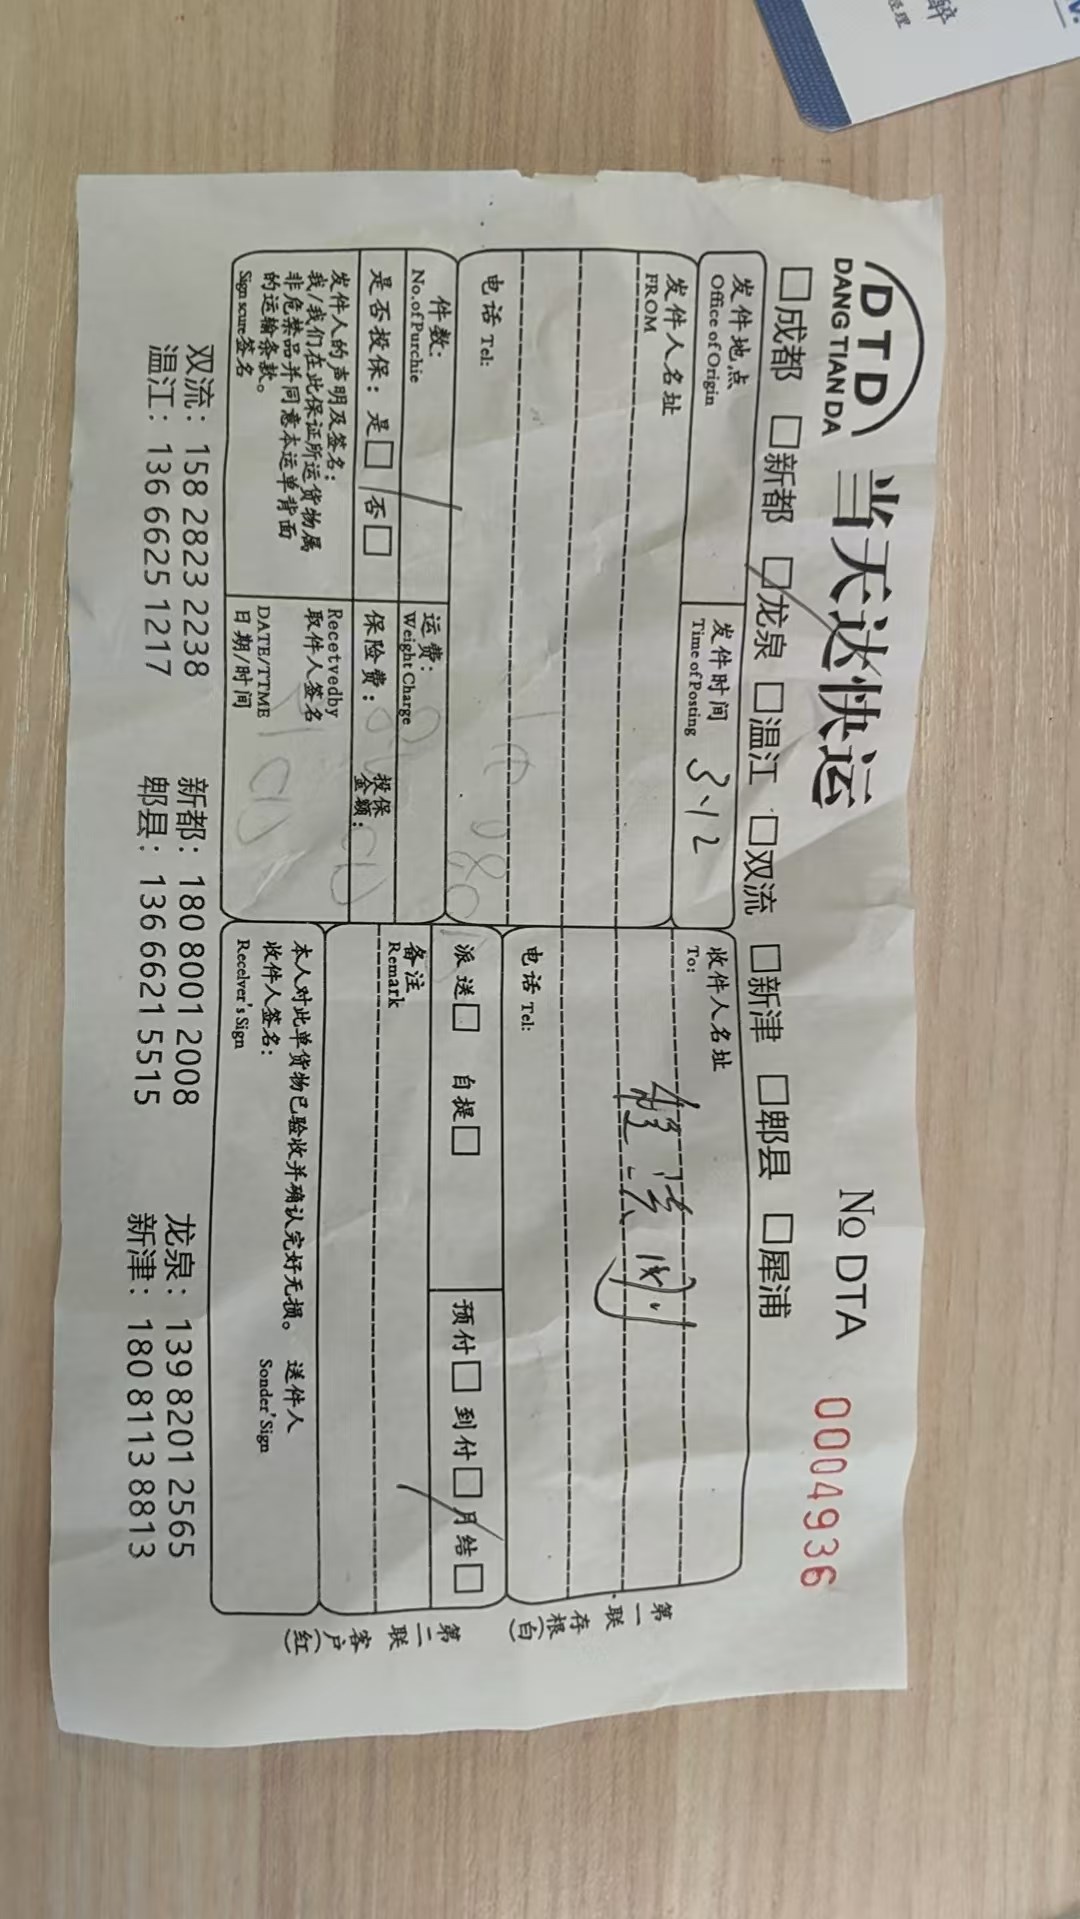 DTD
DANG TIAN DA
当天达快运
No DTA 0004936
□成都 □新都 □龙泉 □温江 □双流 □新津 □郫县 □犀浦
发件地点
Office of Origin
发件时间 3.12
Time of Posting
发件人名址
FROM
电话 Tel:
收件人名址
To:
电话 Tel:
件数:
No.of Purchie
运费:
Weight Charge
是否投保: 是□ 否□
保险费:
投保金额:
发件人的声明及签名:
我/我们在此保证所运货物属
非危禁品并同意本运单背面
的运输条款。
Sign scure签名
Recetvedby
取件人签名
DATE/TTME
日期/时间
派送□ 自提□
预付□ 到付□ 月结□
备注
Remark
本人对此单货物已验收并确认完好无损。
收件人签名:
Recelver's Sign
送件人
Sonder'Sign
第一联 存根(白)
第二联 客户(红)
双流: 158 2823 2238 新都: 180 8001 2008 龙泉: 139 8201 2565
温江: 136 6625 1217 郫县: 136 6621 5515 新津: 180 8113 8813